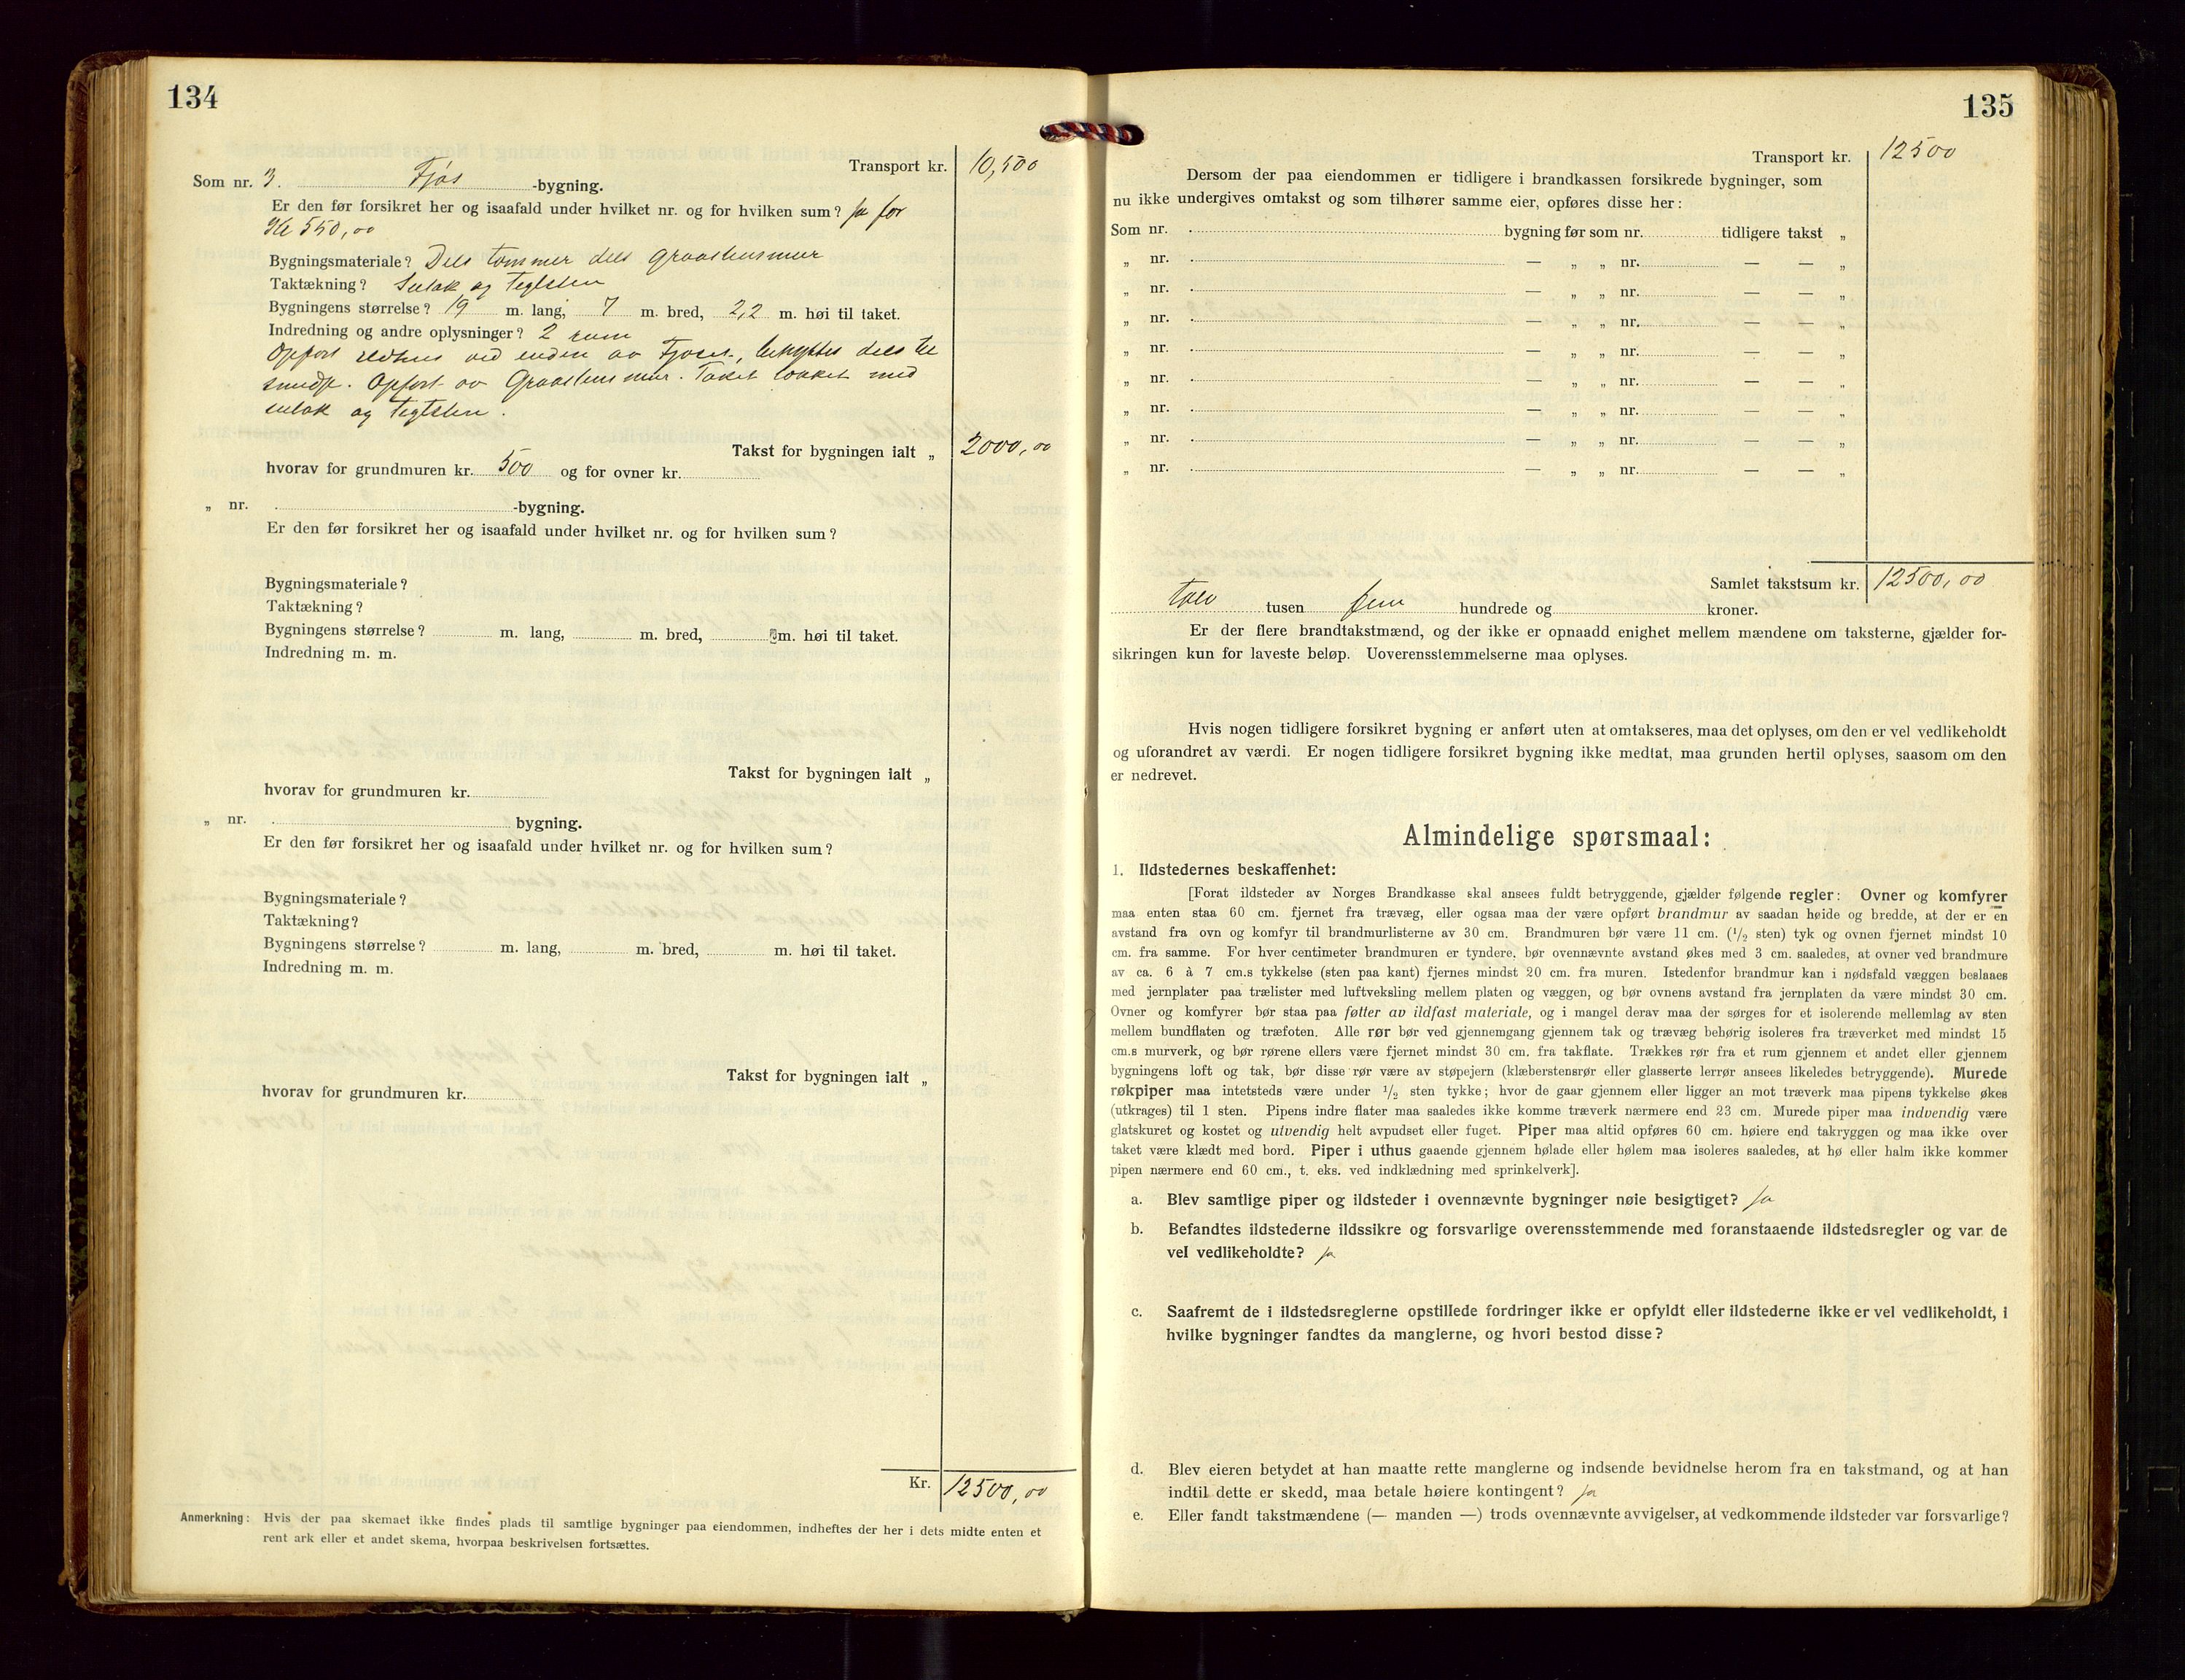 134
Transport kr. 10,500
Som nr. 3. Fjøs -bygning.
Er den før forsikret her og isaafald under hvilket nr. og for hvilken sum? Ja for
Kr 550,00
Bygningsmateriale? Dels tømmer dels graastensmur
Taktækning? Sulak og Teglsten
Bygningens størrelse? 19 m. lang, 7 m. bred, 2,2 m. høi til taket.
Indredning og andre oplysninger? 2 rum
Opført ildhus ved enden av Fjøset, benyttes dels til
smedje. Opført av Graastensmur. Taket tækket med
sulak og teglsten.
Takst for bygningen ialt „ 2000,00
hvorav for grundmuren kr. 500 og for ovner kr.
„ nr. -bygning.
Er den før forsikret her og isaafald under hvilket nr. og for hvilken sum?
Bygningsmateriale?
Taktækning?
Bygningens størrelse? m. lang, m. bred, m. høi til taket.
Indredning m. m.
Takst for bygningen ialt „
hvorav for grundmuren kr.
„ nr. bygning.
Er den før forsikret her og isaafald under hvilket nr. og for hvilken sum?
Bygningsmateriale?
Taktækning?
Bygningens størrelse? m. lang, m. bred, m. høi til taket.
Indredning m. m.
Takst for bygningen ialt „
hvorav for grundmuren kr.
Kr. 12500,00
Anmerkning: Hvis der paa skemaet ikke findes plads til samtlige bygninger paa eiendommen, indheftes der her i dets midte enten et
rent ark eller et andet skema, hvorpaa beskrivelsen fortsættes.
135
Transport kr. 12500
Dersom der paa eiendommen er tidligere i brandkassen forsikrede bygninger, som
nu ikke undergives omtakst og som tilhører samme eier, opføres disse her:
Som nr. bygning før som nr. tidligere takst „
„ nr. — „ „ nr. — — „
„ nr. — „ „ nr. — — „
„ nr. — „ „ nr. — — „
„ nr. — „ „ nr. — — „
„ nr. — „ „ nr. — — „
„ nr. — „ „ nr. — — „
„ nr. — „ „ nr. — — „
„ nr. — „ „ nr. — — „
Samlet takstsum kr. 12500,00
tolv tusen fem hundrede og kroner.
Er der flere brandtakstmænd, og der ikke er opnaadd enighet mellem mændene om taksterne, gjælder for-
sikringen kun for laveste beløp. Uoverensstemmelserne maa oplyses.
Hvis nogen tidligere forsikret bygning er anført uten at omtakseres, maa det oplyses, om den er vel vedlikeholdt
og uforandret av værdi. Er nogen tidligere forsikret bygning ikke medtat, maa grunden hertil oplyses, saasom om den
er nedrevet.
Almindelige spørsmaal:
1. Ildstedernes beskaffenhet:
[Forat ildsteder av Norges Brandkasse skal ansees fuldt betryggende, gjælder følgende regler: Ovner og komfyrer
maa enten staa 60 cm. fjernet fra trævæg, eller ogsaa maa der være opført brandmur av saadan høide og bredde, at der er en
avstand fra ovn og komfyr til brandmurlisterne av 30 cm. Brandmuren bør være 11 cm. (1/2 sten) tyk og ovnen fjernet mindst 10
cm. fra samme. For hver centimeter brandmuren er tyndere, bør ovennævnte avstand økes med 3 cm. saaledes, at ovner ved brandmure
av ca. 6 à 7 cm.s tykkelse (sten paa kant) fjernes mindst 20 cm. fra muren. Istedenfor brandmur kan i nødsfald væggen beslaaes
med jernplater paa trælister med luftveksling mellem platen og væggen, og bør ovnens avstand fra jernplaten da være mindst 30 cm.
Ovner og komfyrer bør staa paa føtter av ildfast materiale, og i mangel derav maa der sørges for et isolerende mellemlag av sten
mellem bundflaten og træfoten. Alle rør bør ved gjennemgang gjennem tak og trævæg behørig isoleres fra træverket med mindst 15
cm.s murverk, og bør rørene ellers være fjernet mindst 30 cm. fra takflate. Trækkes rør fra et rum gjennem et andet eller gjennem
bygningens loft og tak, bør disse rør være av støpejern (klæberstensrør eller glasserte lerrør ansees likeledes betryggende). Murede
røkpiper maa intetsteds være under 1/2 sten tykke; hvor de gaar gjennem eller ligger an mot træverk maa pipens tykkelse økes
(utkrages) til 1 sten. Pipens indre flater maa saaledes ikke komme træverk nærmere end 23 cm. Murede piper maa indvendig være
glatskuret og kostet og utvendig helt avpudset eller fuget. Piper maa altid opføres 60 cm. høiere end takryggen og maa ikke over
taket være klædt med bord. Piper i uthus gaaende gjennem hølade eller hølem maa isoleres saaledes, at hø eller halm ikke kommer
pipen nærmere end 60 cm., t. eks. ved indklædning med sprinkelverk].
a. Blev samtlige piper og ildsteder i ovennævnte bygninger nøie besigtiget? ja
b. Befandtes ildstederne ildssikre og forsvarlige overensstemmende med foranstaaende ildstedsregler og var de
vel vedlikeholdte? ja
c. Saafremt de i ildstedsreglerne opstillede fordringer ikke er opfyldt eller ildstederne ikke er vel vedlikeholdt, i
hvilke bygninger fandtes da manglerne, og hvori bestod disse?
d. Blev eieren betydet at han maatte rette manglerne og indsende bevidnelse herom fra en takstmand, og at han
indtil dette er skedd, maa betale høiere kontingent? ja
e. Eller fandt takstmændene (— manden —) trods ovennævnte avvigelser, at vedkommende ildsteder var forsvarlige?